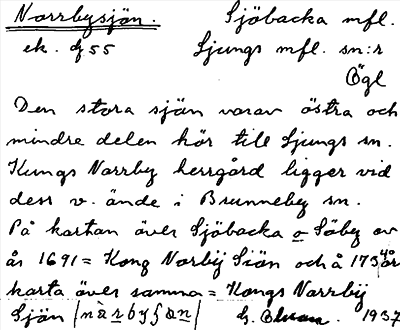 Norrbysjön. Sjöbacka mfl.
ek. df 55 Ljungs mfl. sn:r
Ögl
Den stora sjön varav östra och
mindre delen hör till Ljungs sn.
Kungs Norrby herrgård ligger vid
dess v. ände i Brunneby sn.
På kartan över Sjöbacka o Säby av
år 1691 = Kong Norbÿ Siön och å
karta över samma = Kongs Norrbÿ
Sjön G. 1937